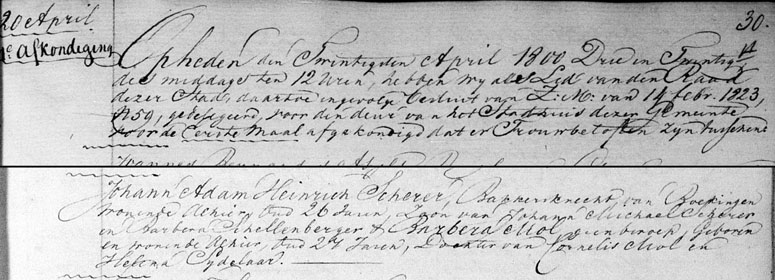 20 April
1e Afkondiging
30.
Opheden den Twintigsten April 1800 Drie en Twintig
des middags ten 12 Uren, hebben wy als Lid van den Raad
dezer Stad, daartoe ingevolge besluit van Z: M: van 14 febr. 1823,
No 59, gedelegeerd, voor den deur van het Stadhuis dezer Gemeente
voor de Eerste Maal afgekondigd dat er Trouwbeloften zyn tusschen
Johann Adam Heinrich Scherer, Bakkersknecht, van Boekingen
wonende Alhier, Oud 26 Jaren, Zoon van Johann Michael Scherer
en Barbera Schellenberger & Barbera Mol geen beroep, Geboren
en wonende Alhier, Oud 27 Jaren, Dochter van Cornelis Mol en
Helena